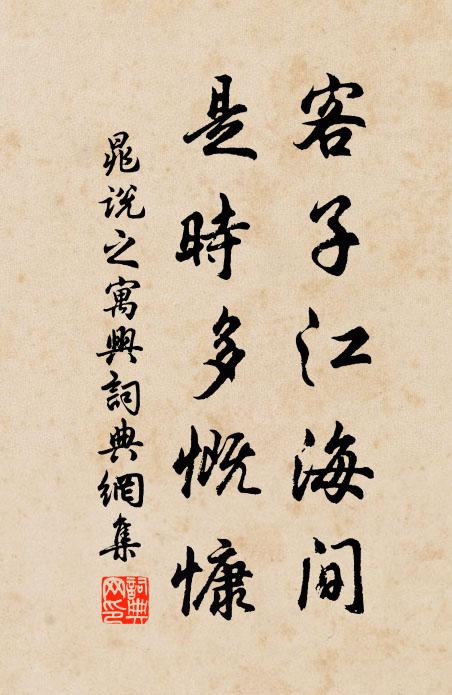 客子江海間
是時多慨慷
晁說之寓興詞典網集
詞典網印